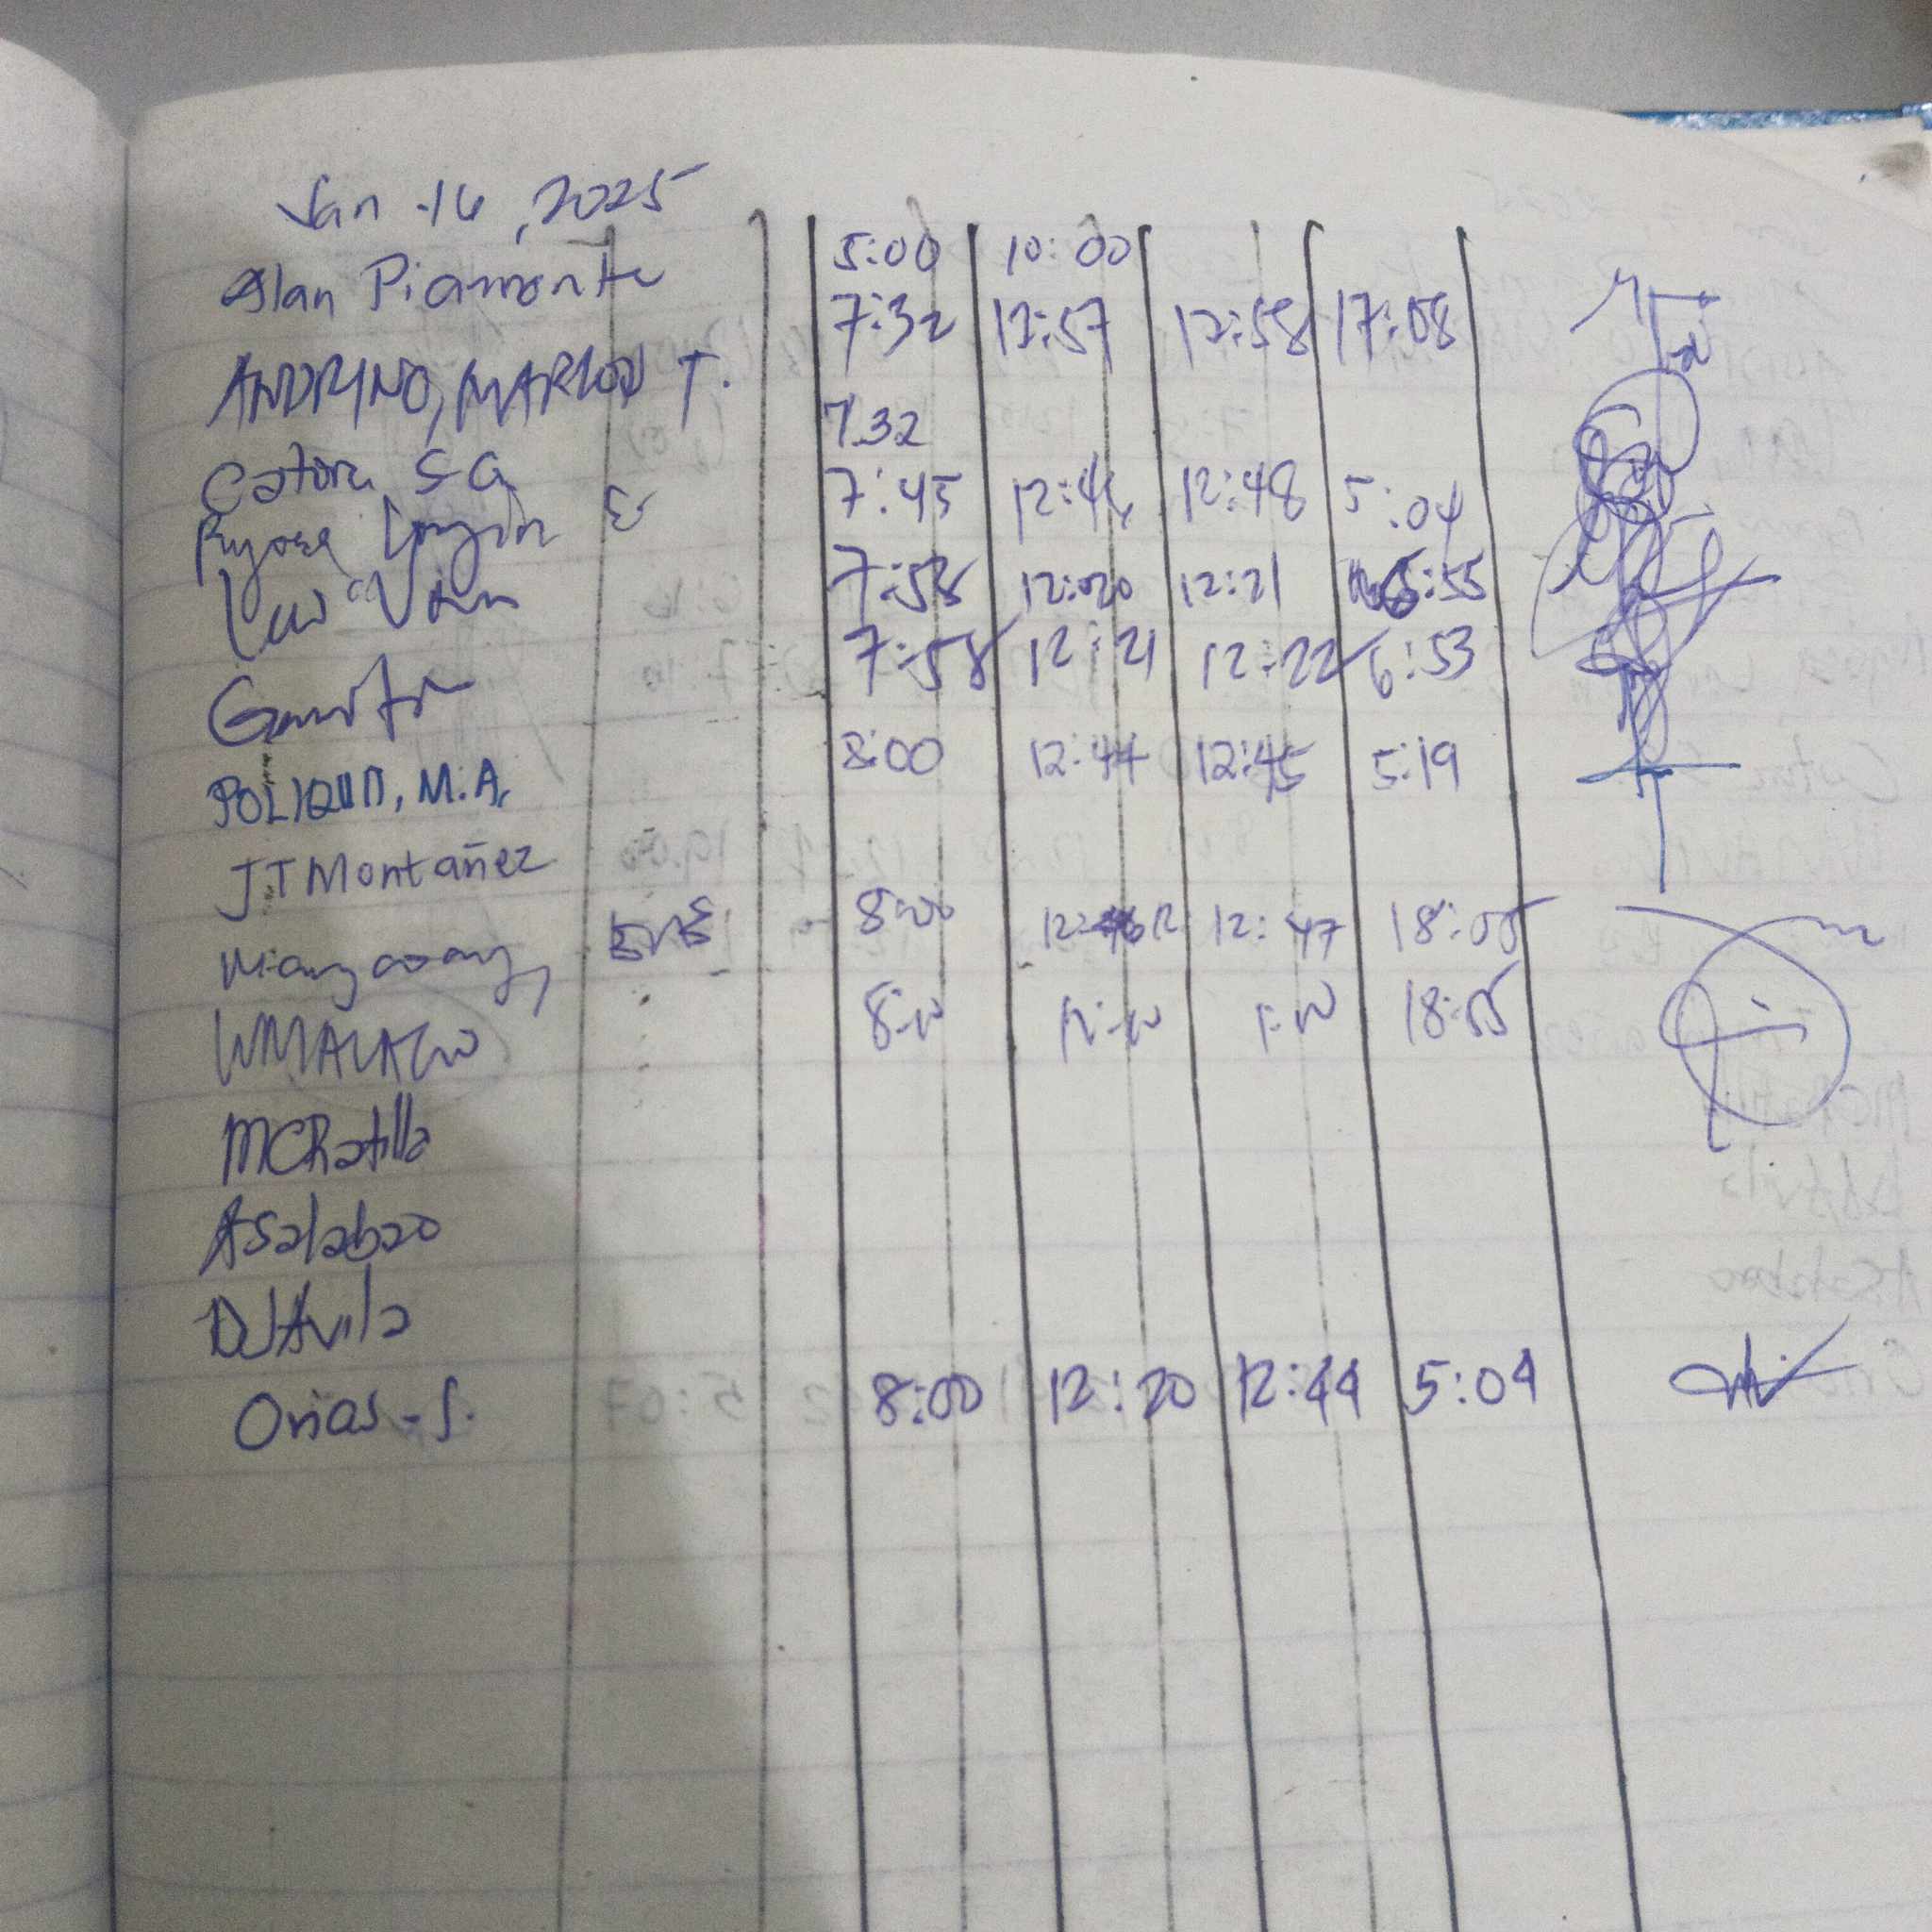 Jan 16, 2025
Alan Piamonte 5:00 10:00
ANDRINO, MARLON T. 7:32 12:57 12:58 17:08
Catora SG 7.32
Ryosa E 7:45 12:46 12:48 5:04
Van 7:58 12:020 12:21 5:55
7:58 12:21 12:22 6:53
POLIQUID, M.A. 8:00 12:44 12:45 5:19
JT Montañez
8:00 12 12:47 18:05
8:00 12:00 1:00 18:05
MCRatilla
ASalabao
DJAvila
Orias - S. 8:00 12:20 12:44 5:04